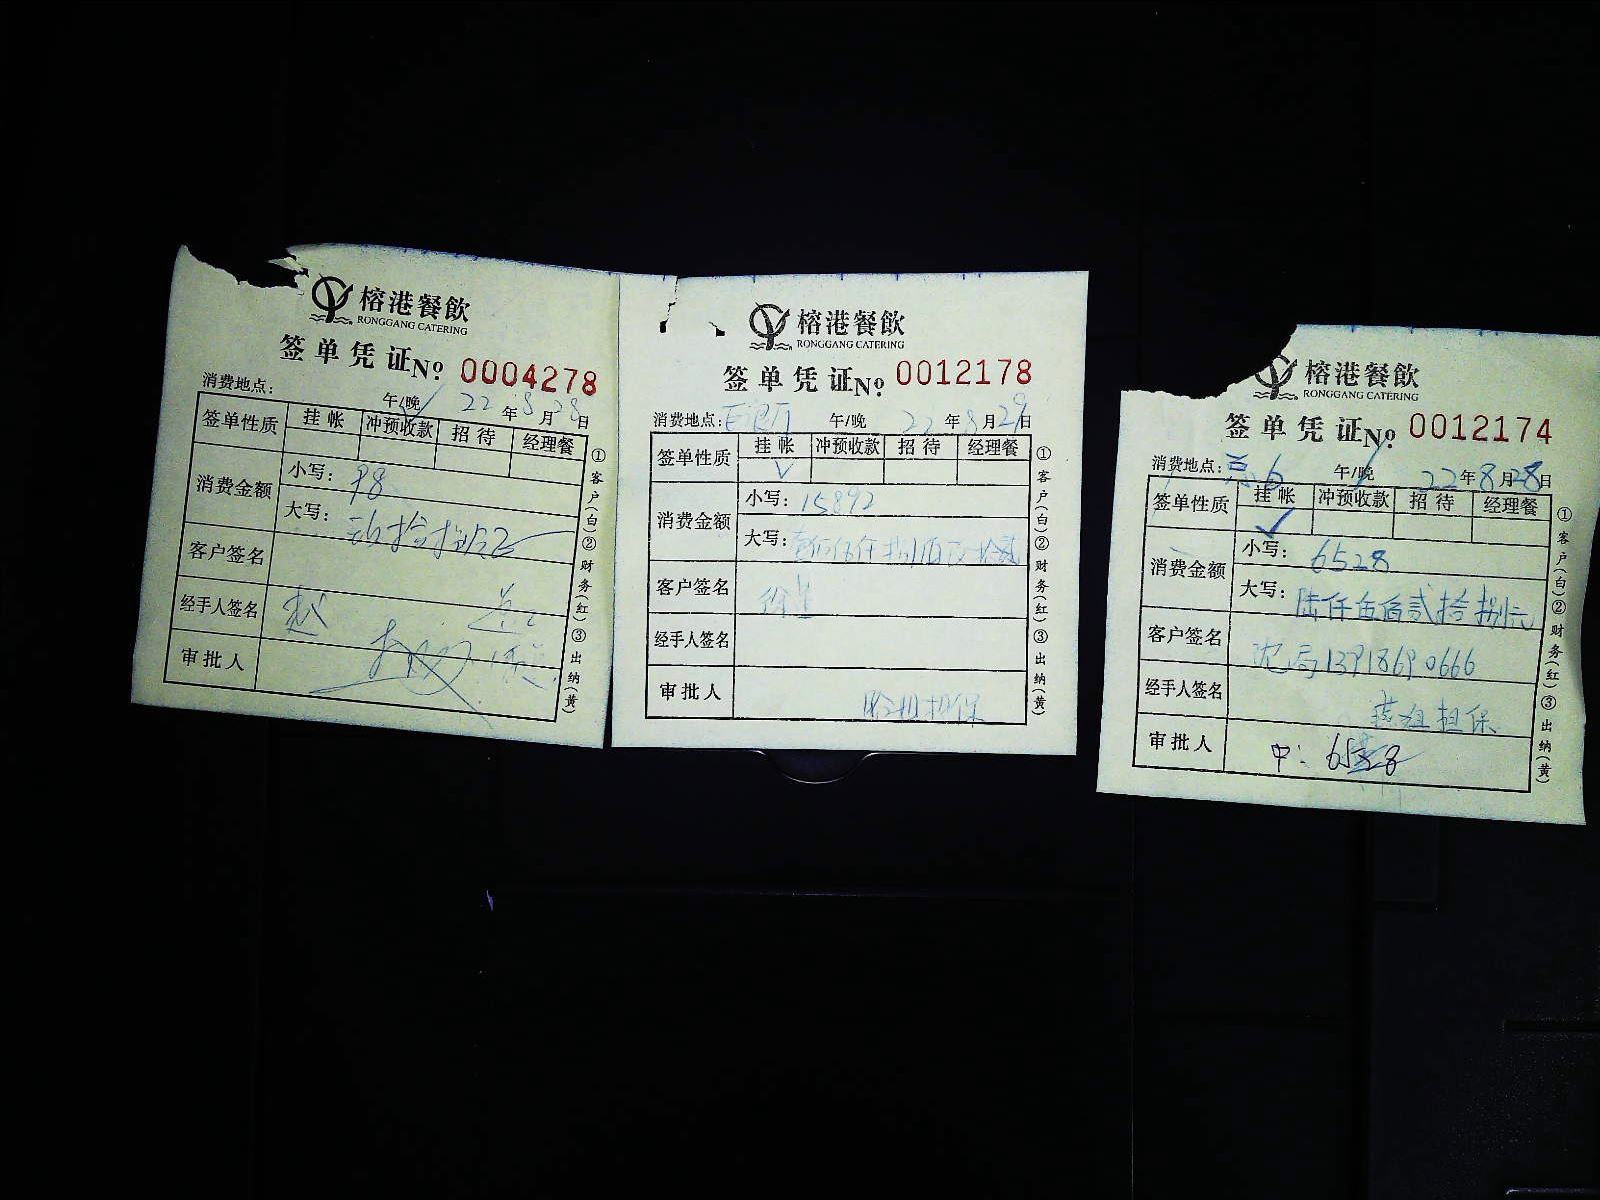 榕港餐飲
RONGGANG CATERING
签单凭证 Nº 0004278
消费地点: 午/晚 22年8月28日
签单性质 挂帐 冲预收款 招待 经理餐
消费金额
小写: 98
大写:
客户签名
经手人签名 赵
审批人
①客户(白)②财务(红)③出纳(黄)
榕港餐飲
RONGGANG CATERING
签单凭证 Nº 0012178
消费地点: 午/晚 22年8月29日
签单性质 挂帐 冲预收款 招待 经理餐
消费金额
小写: 15892
大写:
客户签名
经手人签名
审批人 担保
①客户(白)②财务(红)③出纳(黄)
榕港餐飲
RONGGANG CATERING
签单凭证 Nº 0012174
消费地点: 6 午/晚 22年8月28日
签单性质 挂帐 冲预收款 招待 经理餐
消费金额
小写: 6528
大写: 陆仟伍佰贰拾捌元
客户签名 沈局13918690666
经手人签名 燕姐担保
审批人 中: 6528
①客户(白)②财务(红)③出纳(黄)